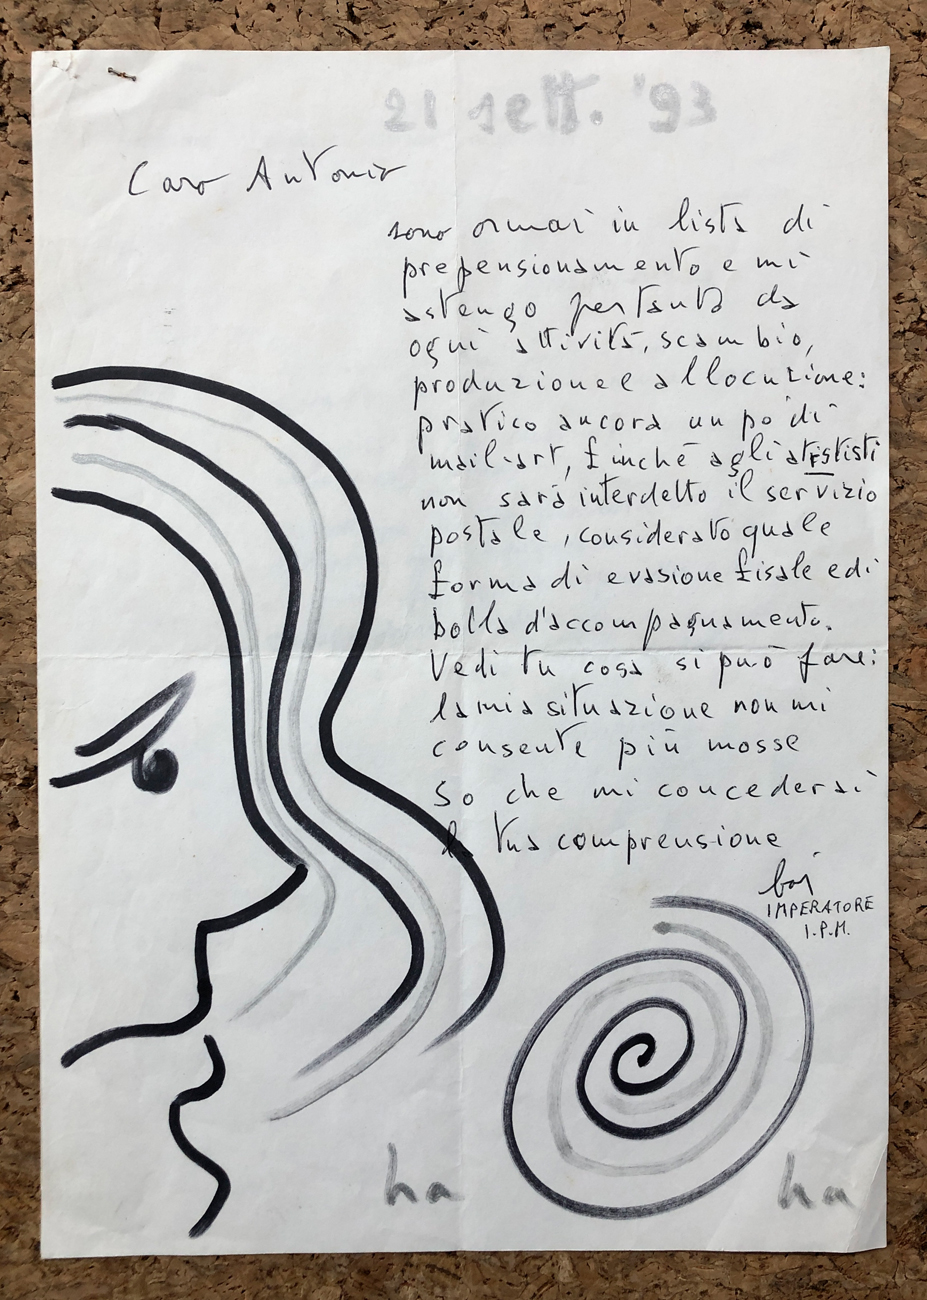 21 sett. '93
Caro Antonio
sono ormai in lista di
prepensionamento e mi
astengo pertanto da
ogni attività, scambio,
produzione e allocuzione:
pratico ancora un po' di
mail-art, finchè agli
non sarà interdetto il servizio
postale, considerato quale
forma di evasione fisale e di
bolla d'accompagnamento.
Vedi tu cosa si può fare:
la mia situazione non mi
consente più mosse
So che mi concederai
la tua comprensione
IMPERATORE
I.P.M.
ha ha